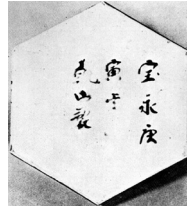 宝永庚
寅年
乾山製